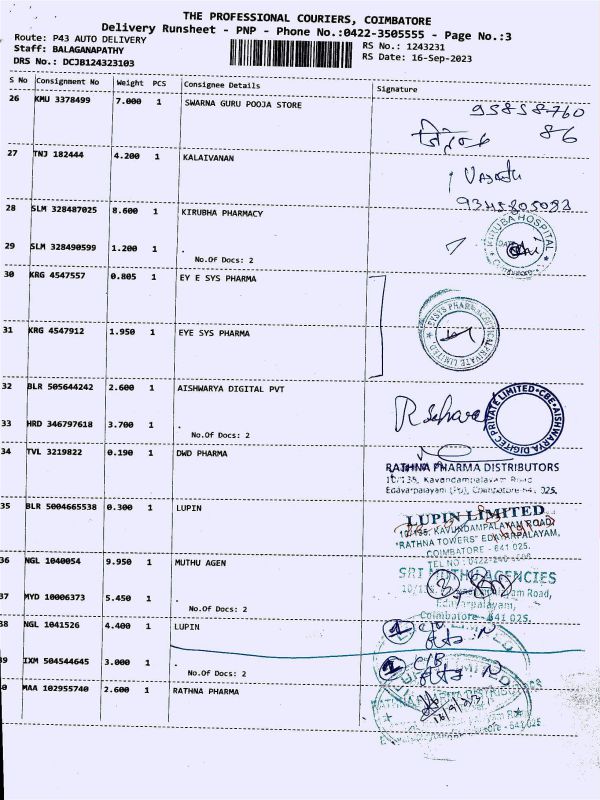 THE PROFESSIONAL COURIERS, COIMBATORE
Delivery Runsheet - PNP - Phone No.:0422-3505555 - Page No.:3
Route: P43 AUTO DELIVERY
RS No.: 1243231
Staff: BALAGANAPATHY
RS Date: 16-Sep-2023
DRS No.: DCJB124323103
S No Consignment No Weight PCS Consignee Details Signature
26 KMU 3378499 7.000 1 SWARNA GURU POOJA STORE
95858-760
86
27 TNJ 182444 4.200 1 KALAIVANAN
28 SLM 328487025 8.600 1 KIRUBHA PHARMACY
KIRUBA HOSPITAL
29 SLM 328490599 1.200 1 .
No.Of Docs: 2
30 KRG 4547557 0.805 1 EY E SYS PHARMA
31 KRG 4547912 1.950 1 EYE SYS PHARMA
EYSYS PHARMACEUTICAL PRIVATE LIMITED
32 BLR 505644242 2.600 1 AISHWARYA DIGITAL PVT
AISHWARYA DIGITEC PRIVATE LIMITED CBE
33 HRD 346797618 3.700 1 .
No.Of Docs: 2
34 TVL 3219822 0.190 1 DWD PHARMA
RATHNA PHARMA DISTRIBUTORS
10/135, Kavundampalayam Road
Edayarpalayani (Po), Coimbatore-641 025.
35 BLR 5004665538 0.300 1 LUPIN
LUPIN LIMITED
10/135, KAVUNDAMPALAYAM ROAD,
"RATHNA TOWERS" EDAYARPALAYAM,
COIMBATORE - 641 025.
36 NGL 1040054 9.950 1 MUTHU AGEN
SRI MUTHU AGENCIES
37 MYD 10006373 5.450 1 .
Edayarpalayam,
No.Of Docs: 2
Coimbatore - 641 025.
38 NGL 1041526 4.400 1 LUPIN
39 IXM 504544645 3.000 1 .
No.Of Docs: 2
40 MAA 102955740 2.600 1 RATHNA PHARMA
16/9/23